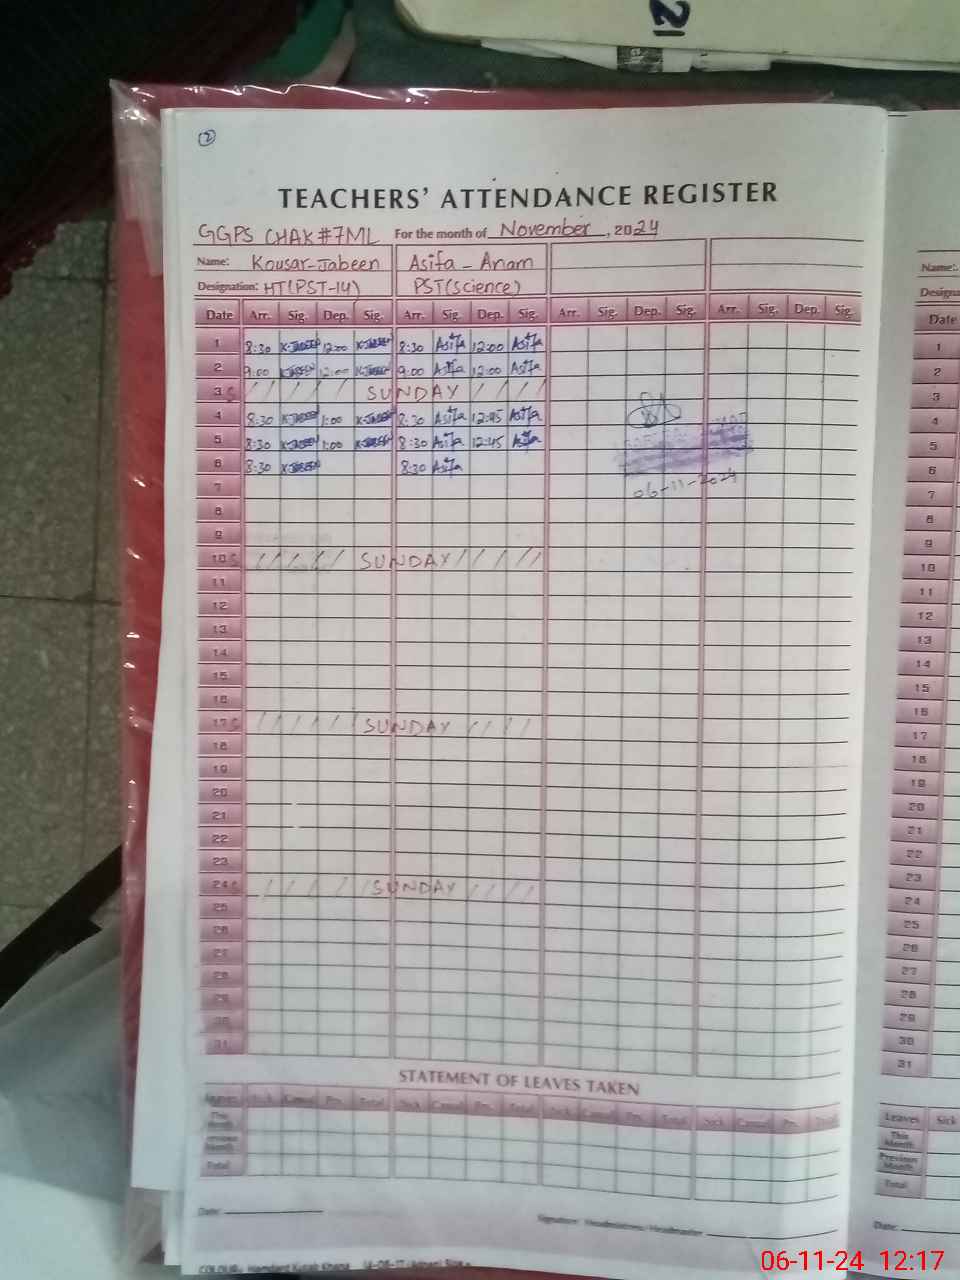 21
2
TEACHERS' ATTENDANCE REGISTER
GGPS CHAK#7ML For the month of November, 2024
Name: Kousar-Jabeen Asifa-Anam
Designation: HT(PST-14) PST(Science)
Date Arr. Sig. Dep. Sig. Arr. Sig. Dep. Sig. Arr. Sig. Dep. Sig. Arr. Sig. Dep. Sig.
1 8:30 K-JABEEN 12:00 K-JABEEN 8:30 Asifa 12:00 Asifa
2 9:00 K-JABEEN 12:00 K-JABEEN 9:00 Asifa 12:00 Asifa
3 S SUNDAY
4 8:30 K-JABEEN 1:00 K-JABEEN 8:30 Asifa 12:45 Asifa
5 8:30 K-JABEEN 1:00 K-JABEEN 8:30 Asifa 12:45 Asifa
6 8:30 K-JABEEN 8:30 Asifa
06-11-2024
7
8
9
10 S SUNDAY
11
12
13
14
15
16
17 S SUNDAY
18
19
20
21
22
23
24 S SUNDAY
25
26
27
28
29
30
31
STATEMENT OF LEAVES TAKEN
Leaves Sick Casual Prv. Total Sick Casual Prv. Total Sick Casual Prv. Total Sick Casual Prv. Total
This Month
Previous Month
Total
Date:
Signature: Headmistress/Headmaster
Name:
Designa
Date
1
2
3
4
5
6
7
8
9
10
11
12
13
14
15
16
17
18
19
20
21
22
23
24
25
26
27
28
29
30
31
Leaves Sick
This Month
Previous Month
Total
Date:
06-11-24 12:17